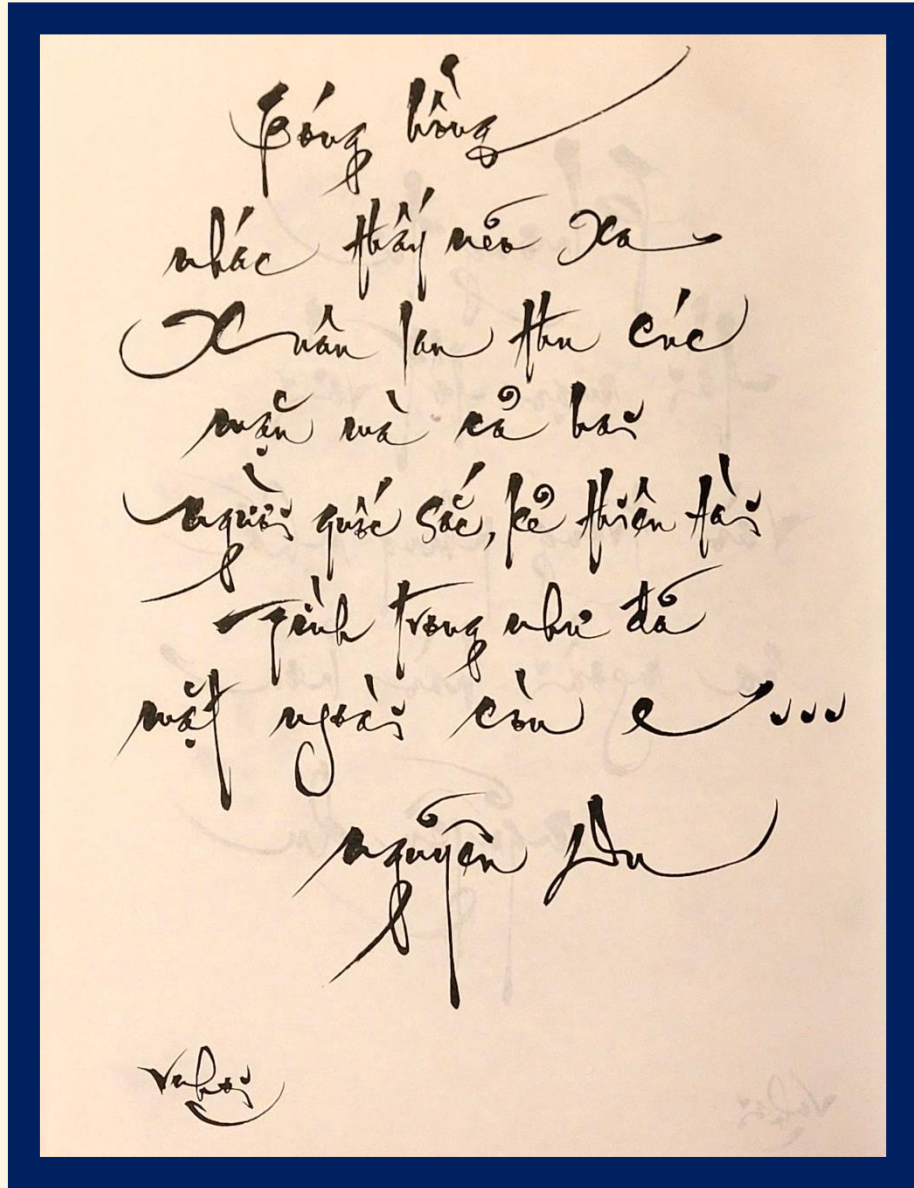 Bóng hồng
nhác thấy nẻo xa
Xuân lan thu cúc
mặn mà cả hai
người quốc sắc, kẻ thiên tài
Tình trong như đã
mặt ngoài còn e...
Nguyễn Du
Vũ Hối